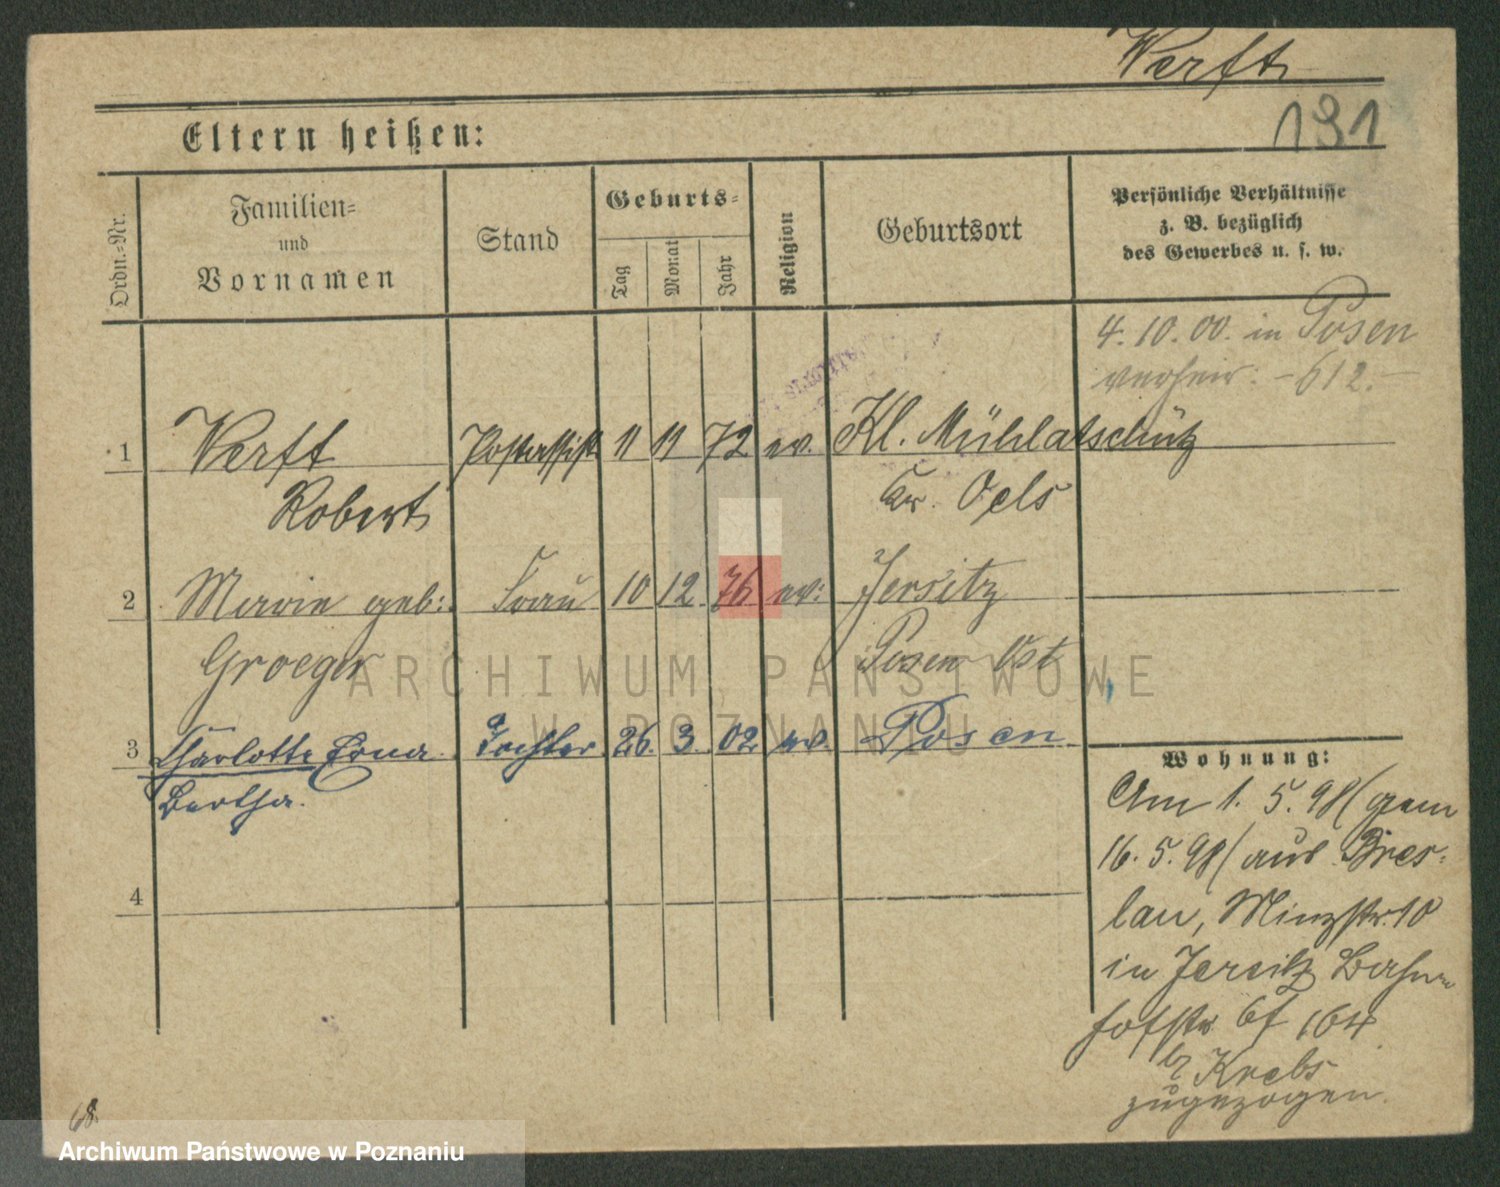 Werft
Eltern heißen:
191
Ordn.-Nr.
Familien-
und
Vornamen
Stand
Geburts-
Tag
Monat
Jahr
Religion
Geburtsort
Persönliche Verhältnisse
z. B. bezüglich
des Gewerbes u. s. w.
4. 10. 00. in Posen
verheir. - 612. -
1 Werft Postassist 11 11 72 ev. Kl. Mühlatschütz
Robert Kr. Oels
2 Marie geb: Frau 10 12 76 ev: Jersitz
Groeger Posen Ost
3 Charlotte Erna Tochter 26. 3. 02 ev. Posen
Bertha.
4
Wohnung:
Am 1. 5. 98 (gem
16. 5. 98) aus Bres-
lau, Minzstr. 10
in Jersitz Bahn-
hofstr 164
b/ Krebs
zugezogen.
68.
ARCHIWUM PAŃSTWOWE
W POZNANIU
Archiwum Państwowe w Poznaniu